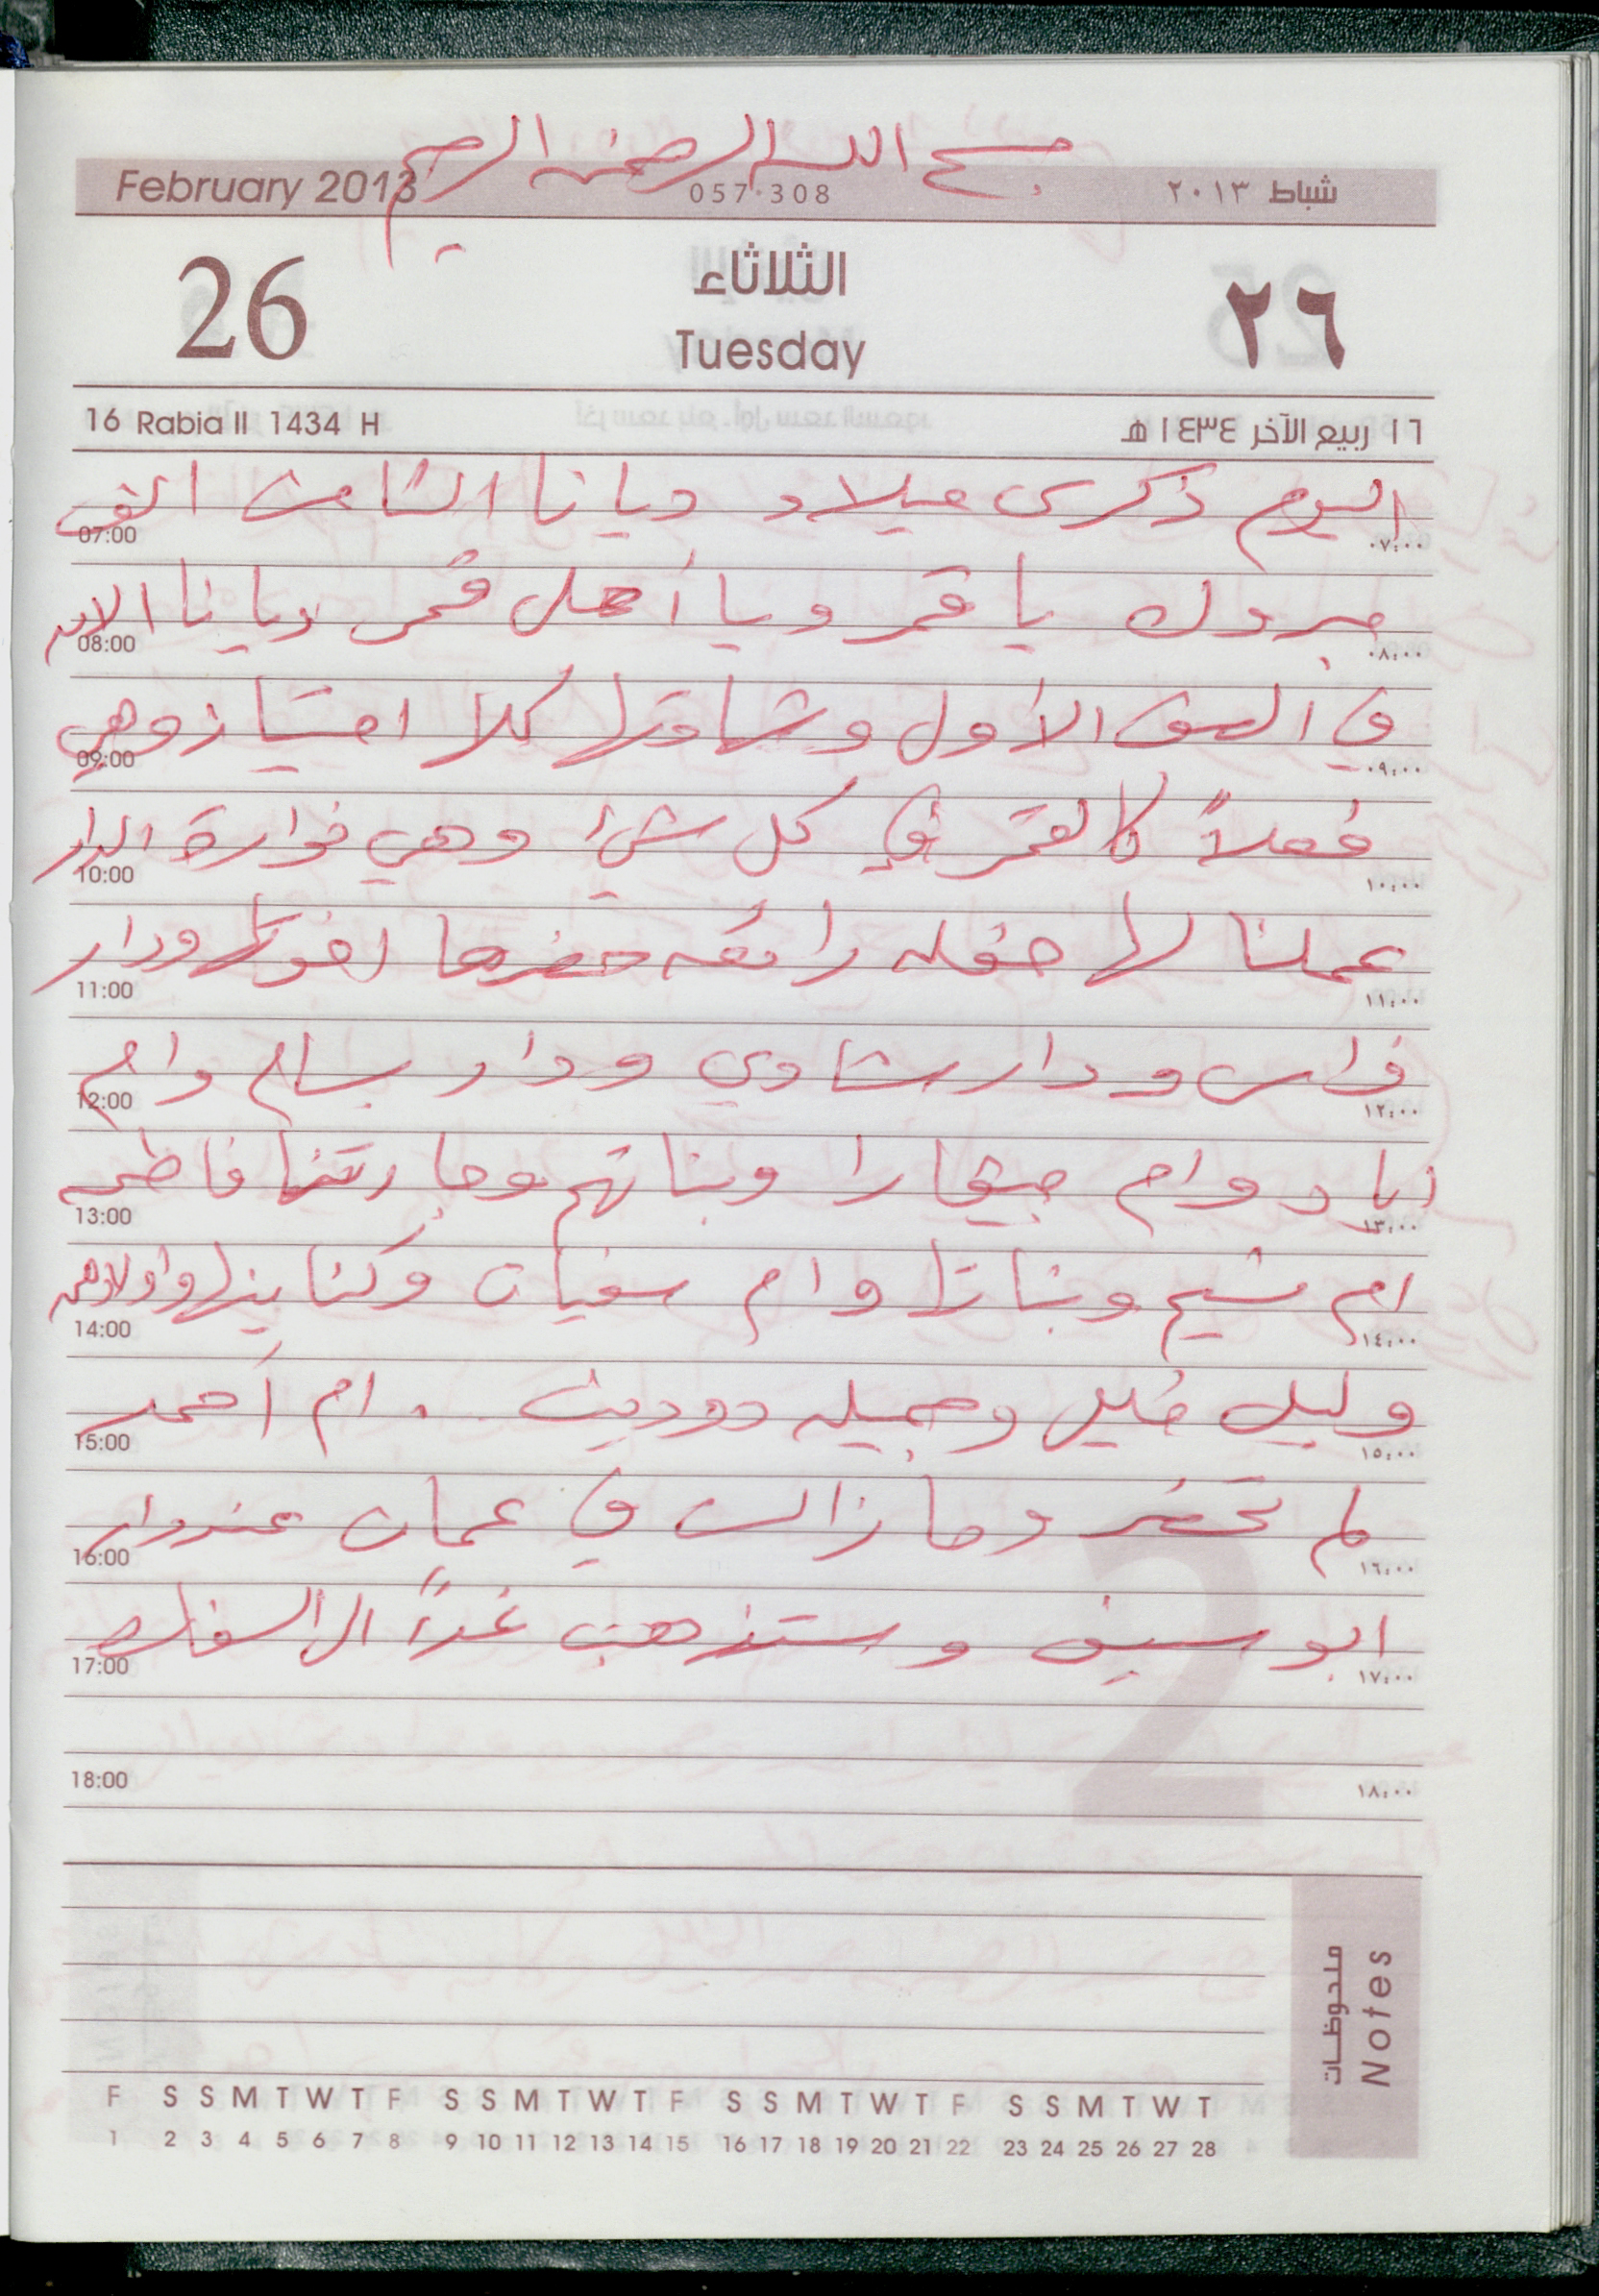 بسم الله الرحمن الرحيم
February 2013 057·308 شباط ٢٠١٣
26 الثلاثاء ٢٦
Tuesday
16 Rabia II 1434 H ١٦ ربيع الآخر ١٤٣٤ هـ
اليوم ذكرى ميلاد ديانا الثامن الف
07:00 ٠٧:٠٠
مبروك يا قمر ويا أحلى قمر ديانا الان
08:00 ٠٨:٠٠
في الصف الأول وشهادتها كلا امتياز وهي
09:00 ٠٩:٠٠
فعلاً كالقمر في كل شيء وهي نوارة الدار
10:00 ١٠:٠٠
عملنا لها حفله رائعه حضرها اخوالها ودار
11:00 ١١:٠٠
فراس ودار شادي ودار بسام وام
12:00 ١٢:٠٠
اياد وام جيفارا وبناتهم وجارتنا فاطمه
13:00 ١٣:٠٠
ام وبناتها وام سفيان وكناينها واولادهم
14:00 ١٤:٠٠
خليل وجميله دودين . ام أحمد
15:00 ١٥:٠٠
لم تحضر وما زالت في عمان عند دار
16:00 ١٦:٠٠
ابو سيف وستذهب غداً الى السفاره
17:00 ١٧:٠٠
2
18:00 ١٨:٠٠
ملحوظات
Notes
F S S M T W T F S S M T W T F S S M T W T F S S M T W T
1 2 3 4 5 6 7 8 9 10 11 12 13 14 15 16 17 18 19 20 21 22 23 24 25 26 27 28